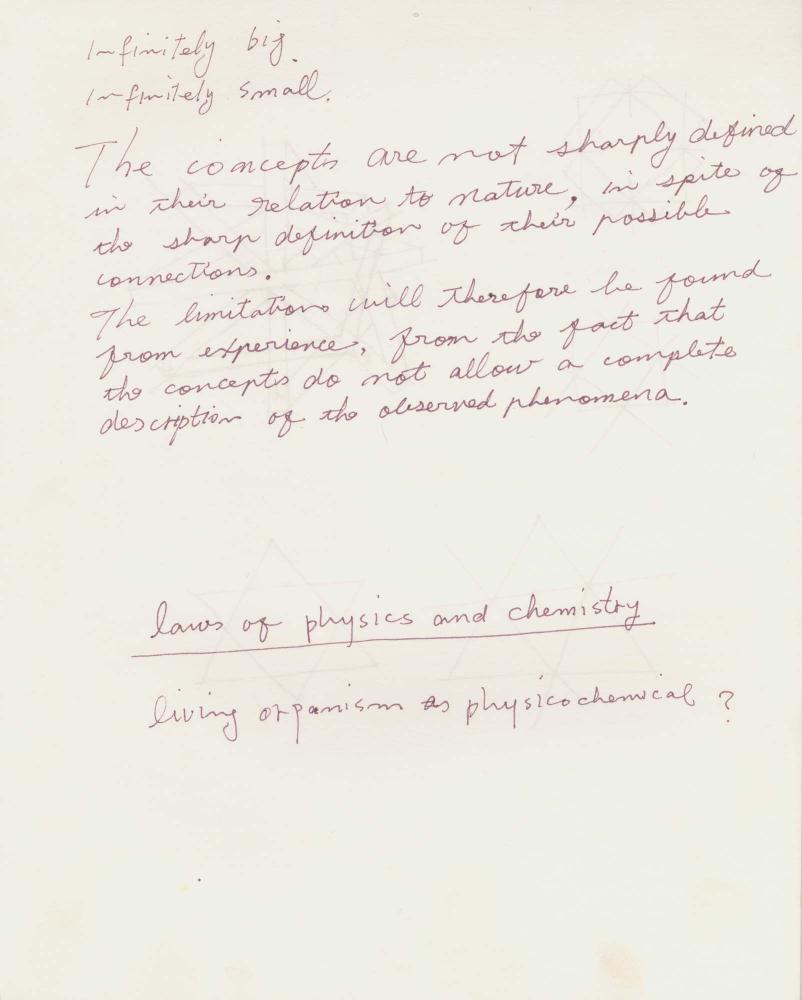 Infinitely big.
Infinitely small.
The concepts are not sharply defined
in their relation to nature, in spite of
the sharp definition of their possible
connections.
The limitations will therefore be found
from experience, from the fact that
the concepts do not allow a complete
description of the observed phenomena.
laws of physics and chemistry
living organism as physicochemical ?